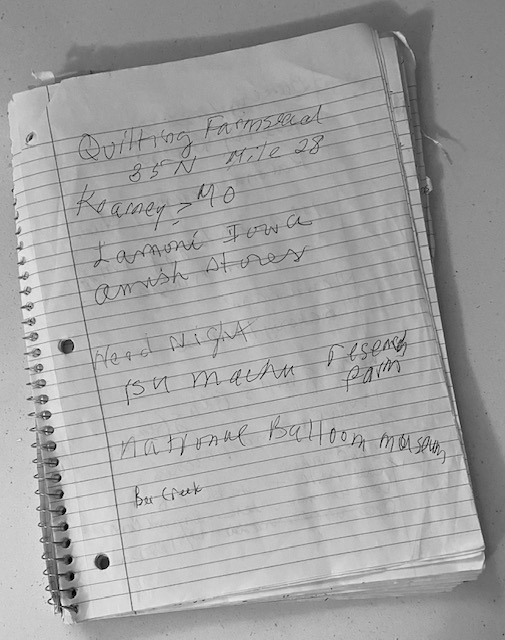 Quilting Farmstead
35N Mile 28
Kearney > MO
Lamoni Iowa
amish stores
Head Night
ISU research
farm
National Balloon museum
Bee Creek